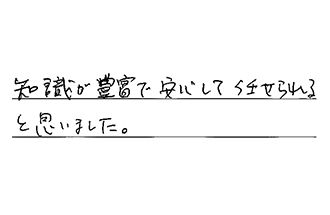 知識が豊富で安心して任せられる
と思いました。